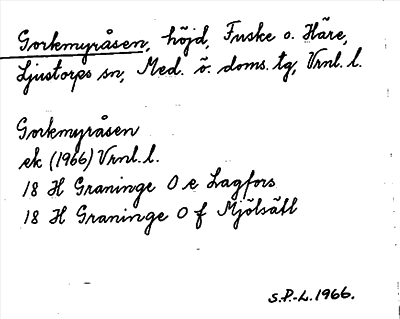 Gorkmyråsen, höjd, Fuske o. Häre,
Ljustorps sn, Med. ö. doms. tg, Vrnl. l.
Gorkmyråsen
ek (1966) Vrnl. l.
18 H Graninge 0 e Lagfors
18 H Graninge 0 f Mjölsätt
S.P.-L. 1966.